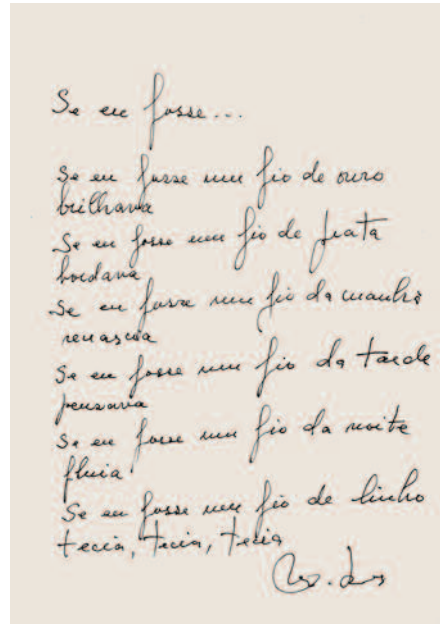 Se eu fosse...
Se eu fosse um fio de ouro
brilhava
Se eu fosse um fio de prata
bordava
Se eu fosse um fio da manhã
renascia
Se eu fosse um fio da tarde
pensava
Se eu fosse um fio da noite
fluia
Se eu fosse um fio de linho
tecia, tecia, tecia